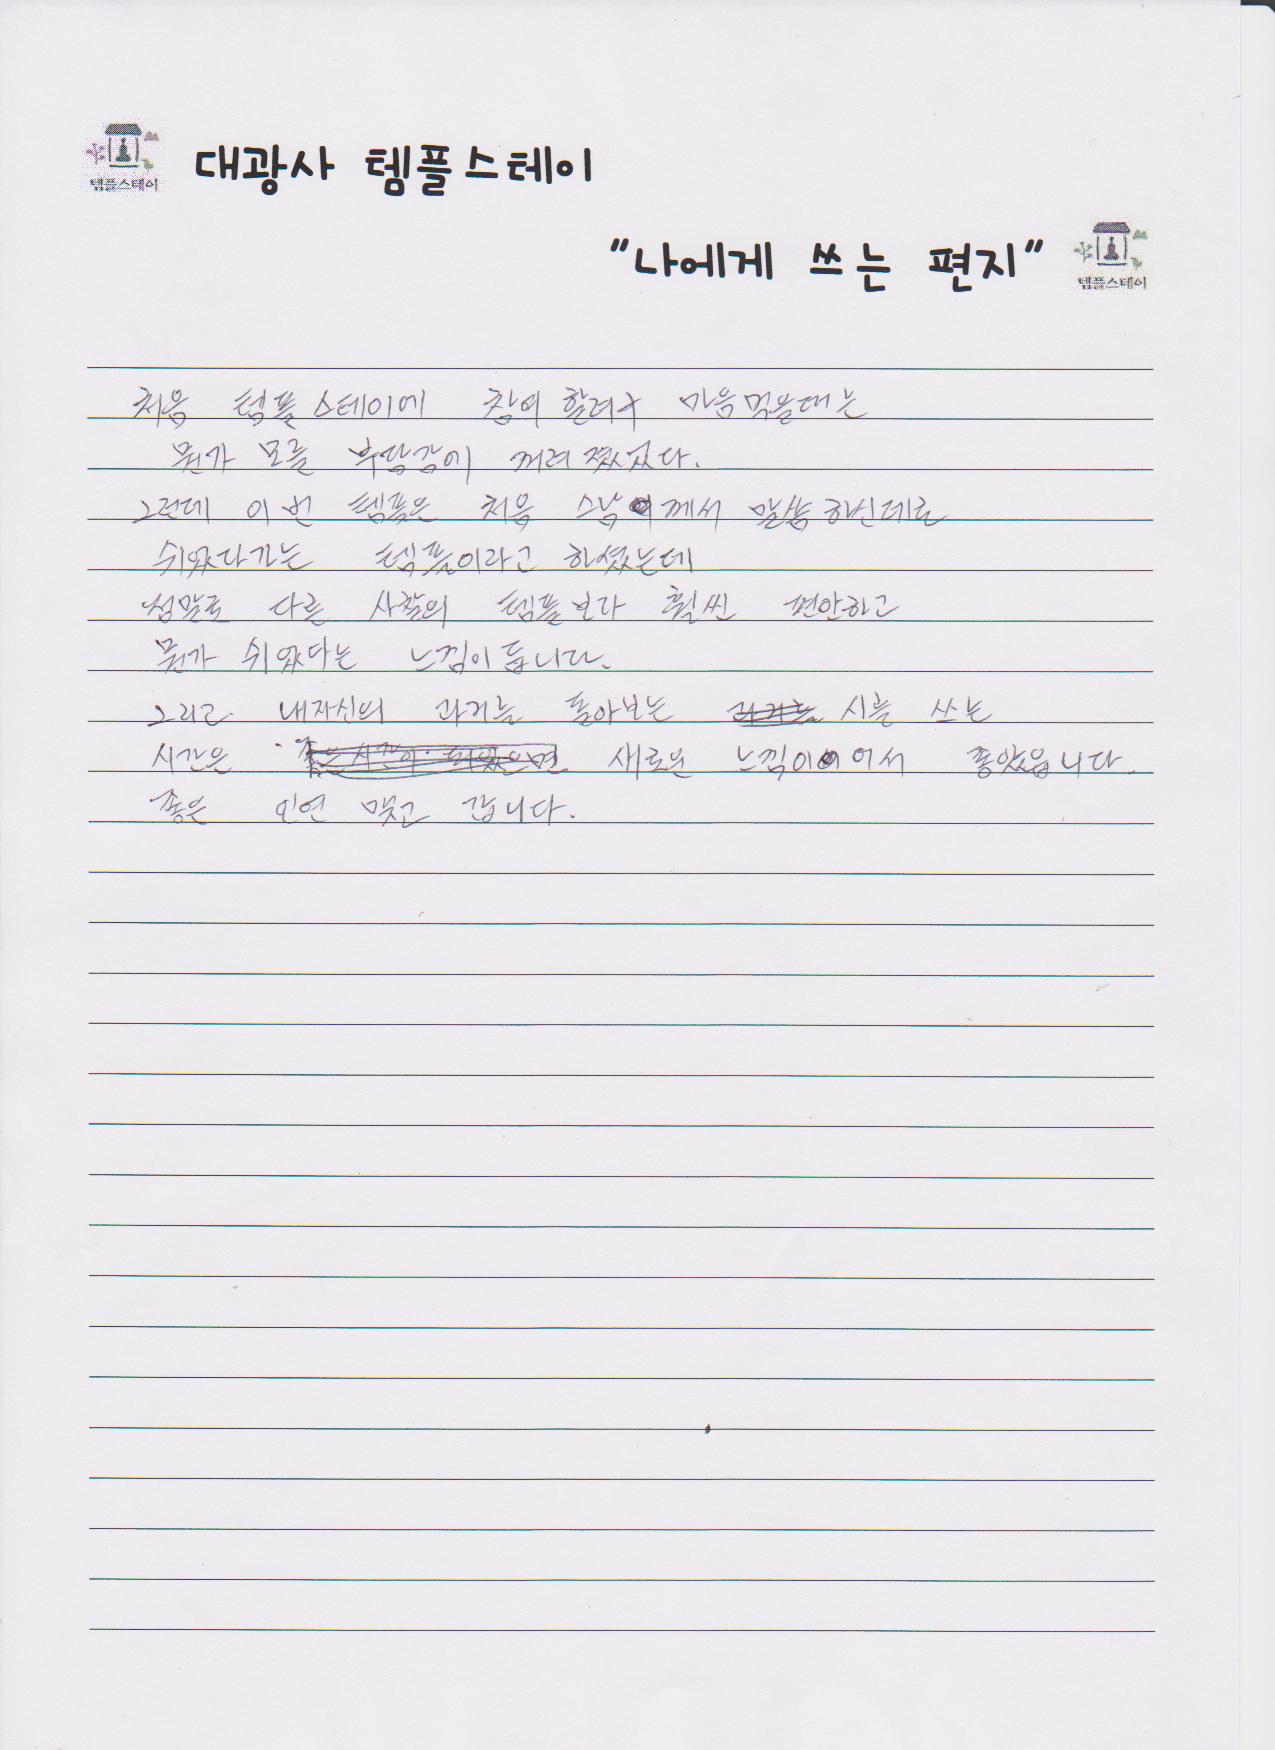 템플스테이
대광사 템플스테이
"나에게 쓰는 편지"
템플스테이
처음 템플스테이에 참여 할려구 마음먹을때는
뭔가 모를 부담감이 꺼려 졌었다.
그런데 이번 템플은 처음 스님께서 말씀하신데로
쉬었다가는 템플이라고 하셨는데
정말로 다른 사찰의 템플보다 훨씬 편안하고
뭔가 쉬었다는 느낌이듭니다.
그리고 내자신의 과거를 돌아보는 시를 쓰는
시간은 새로운 느낌이어서 좋았읍니다.
좋은 인연 맺고 갑니다.